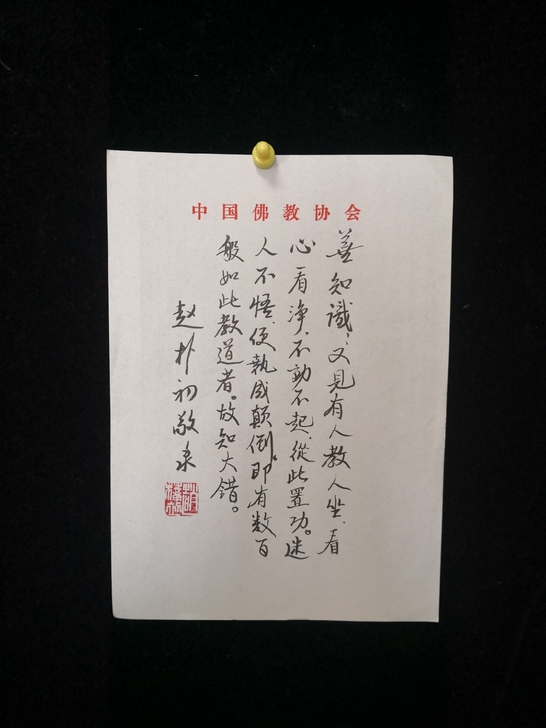 中国佛教协会
善知識，又見有人教人坐、看
心看淨，不動不起，從此置功。迷
人不悟，便執成顛倒。即有数百
般如此教道者。故知大错。
赵朴初敬录
趙樸初